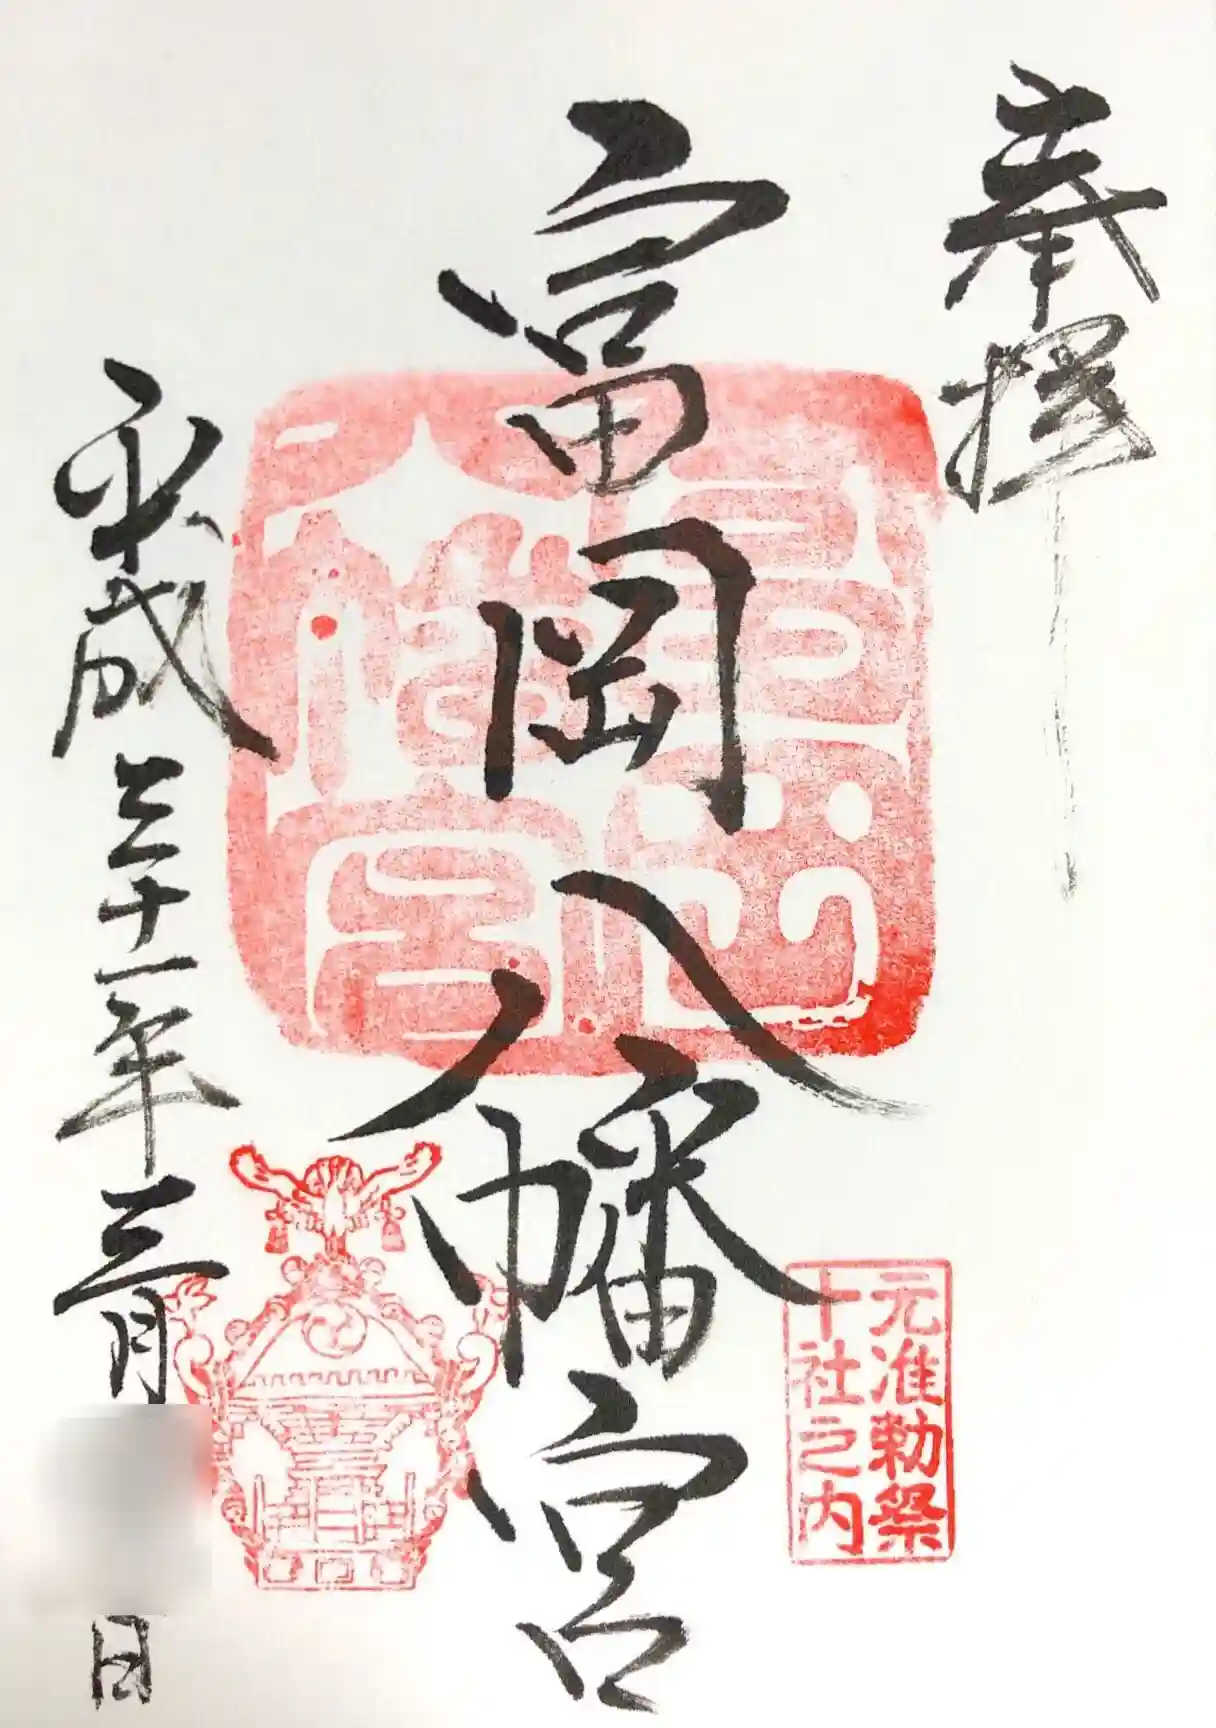 奉拝
富岡八幡宮
富岡八幡宮
元准勅祭
十社之内
平成三十一年三月
日